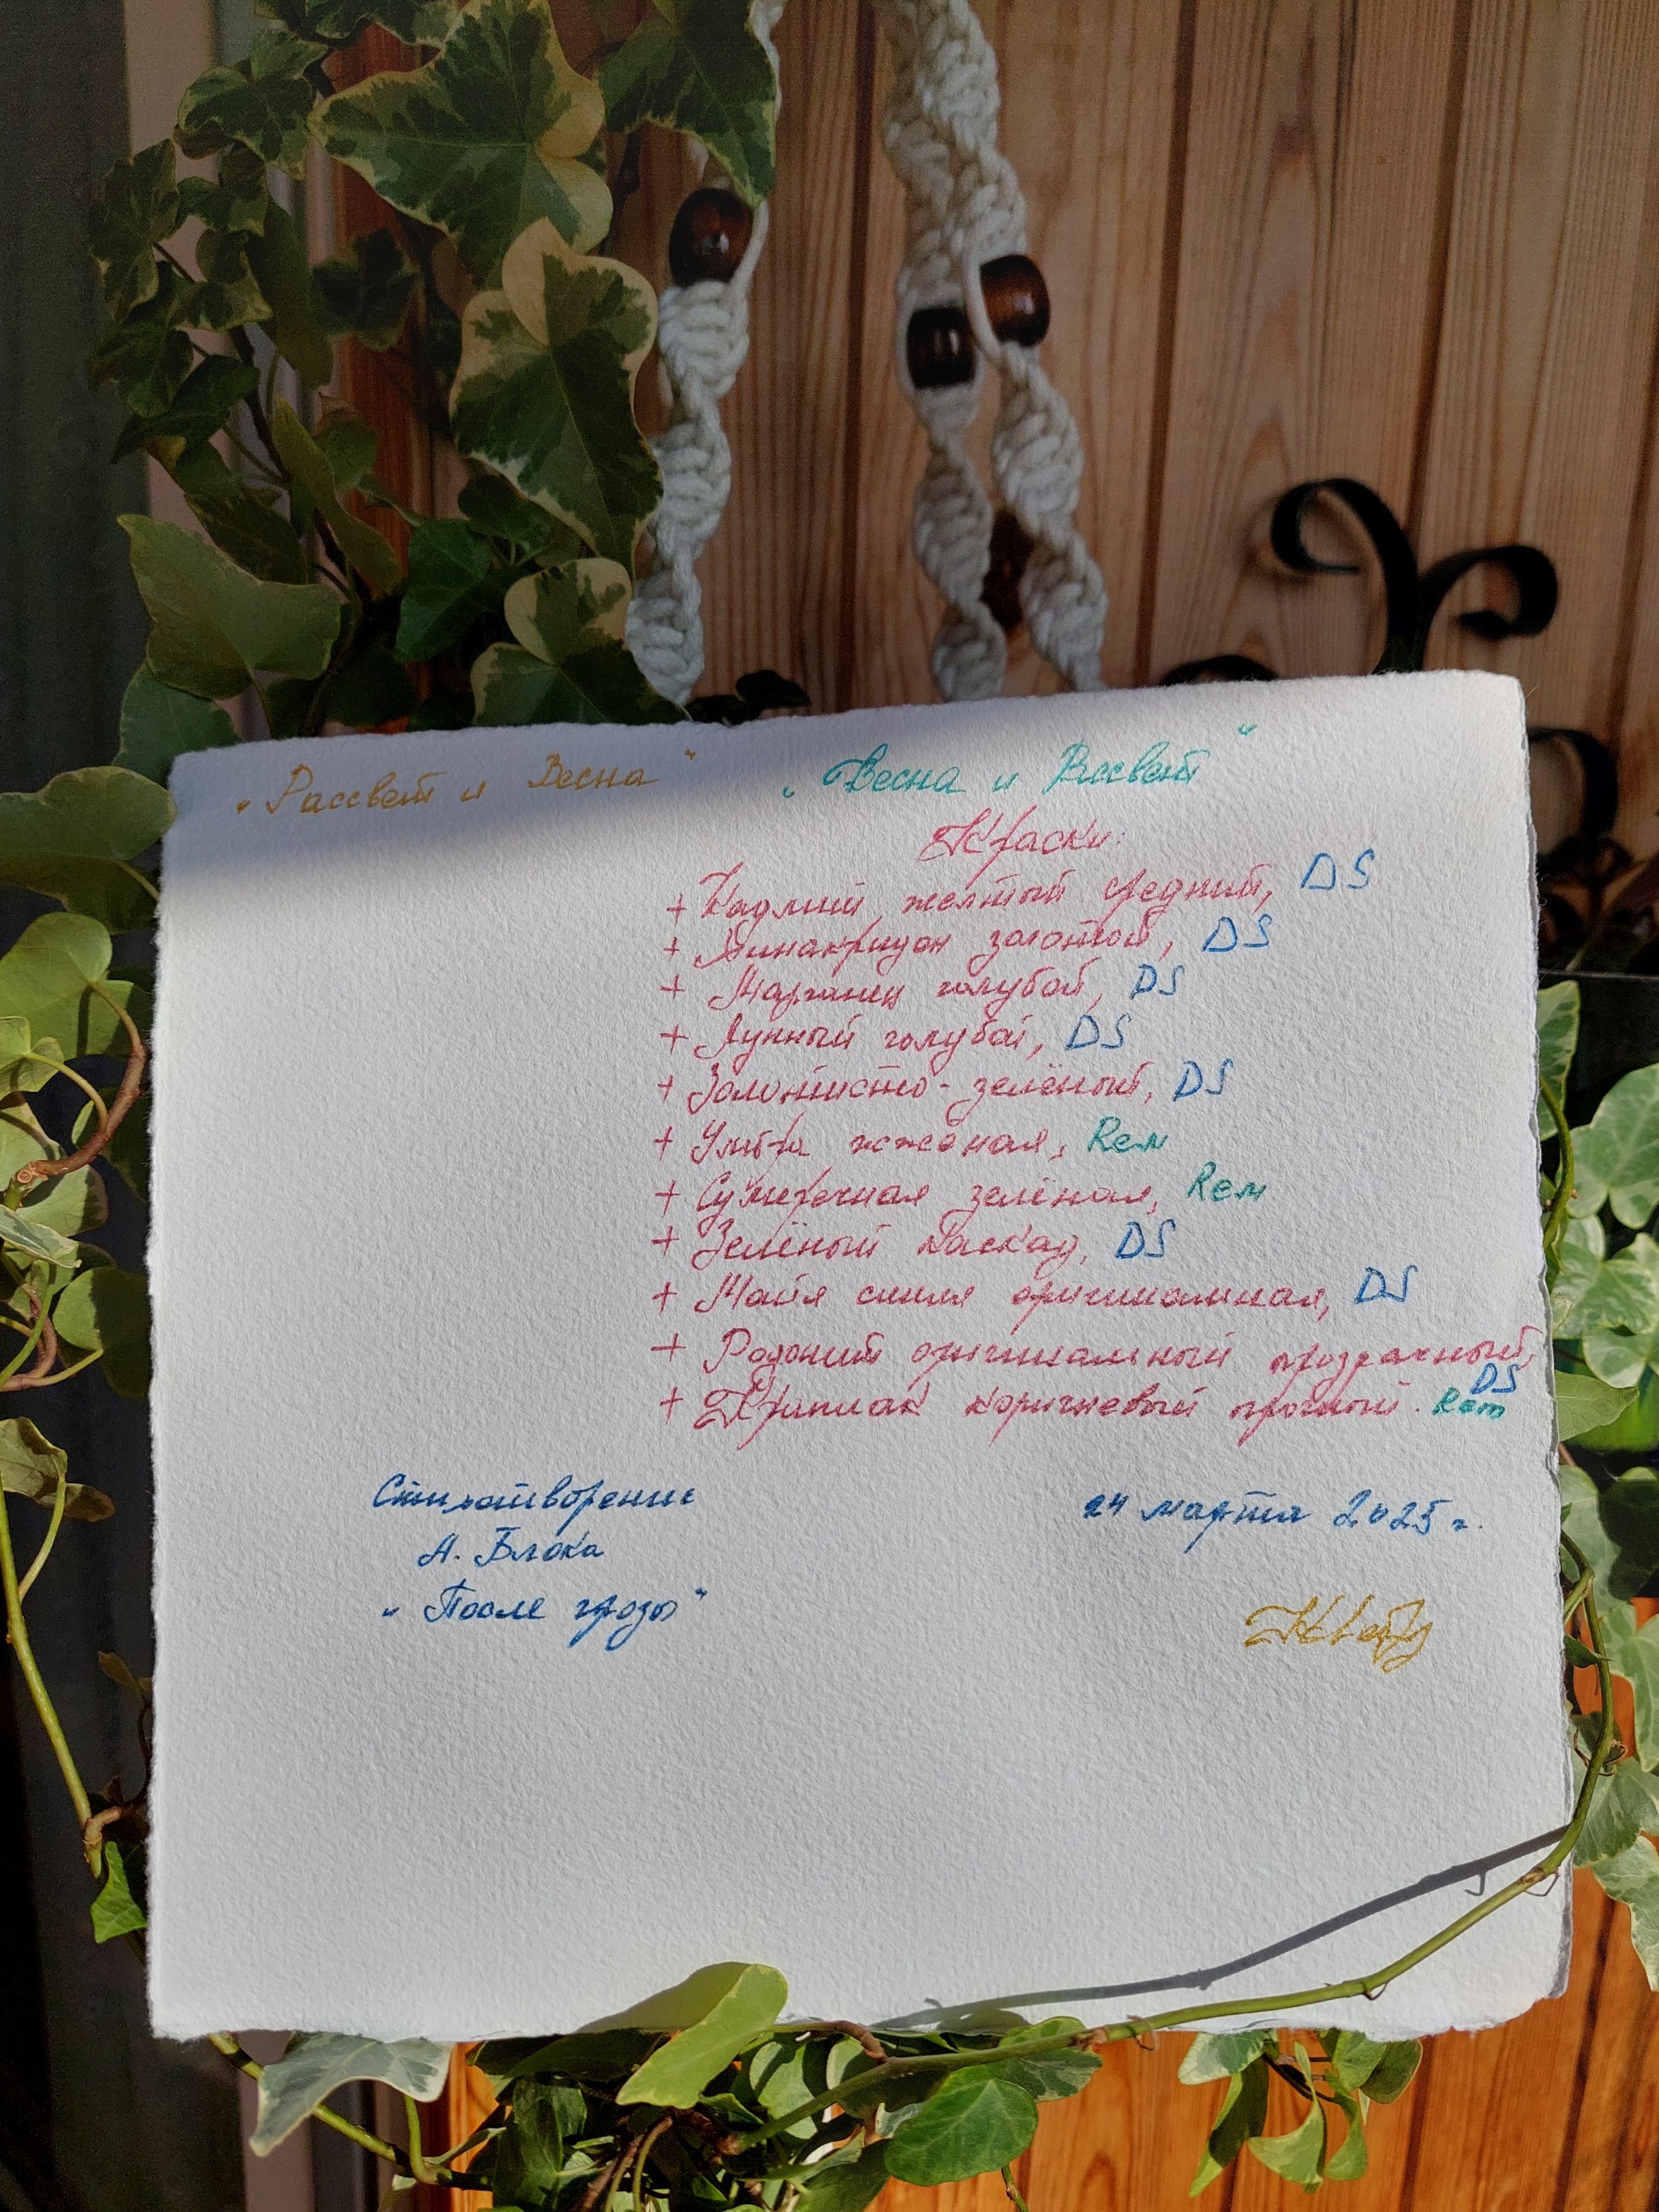 „Рассвет и Весна"
„Весна и Рассвет"
Краски:
+ Кадмий желтый средний, DS
+ Хинакридон золотой, DS
+ Марганец голубой, DS
+ Лунный голубой, DS
+ Золотисто-зелёный, DS
+ Умбра жжёная, Rем
+ Сумеречная зелёная, Rем
+ Зелёный каскад, DS
+ Майя синяя оригинальная, DS
+ Родонит оригинальный прозрачный, DS
+ Краплак коричневый прочный. Rem
Стихотворение
А. Блока
„После грозы"
24 марта 2025 г.